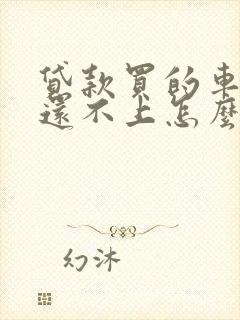 貸款買的車
還不上怎麼
幻沐